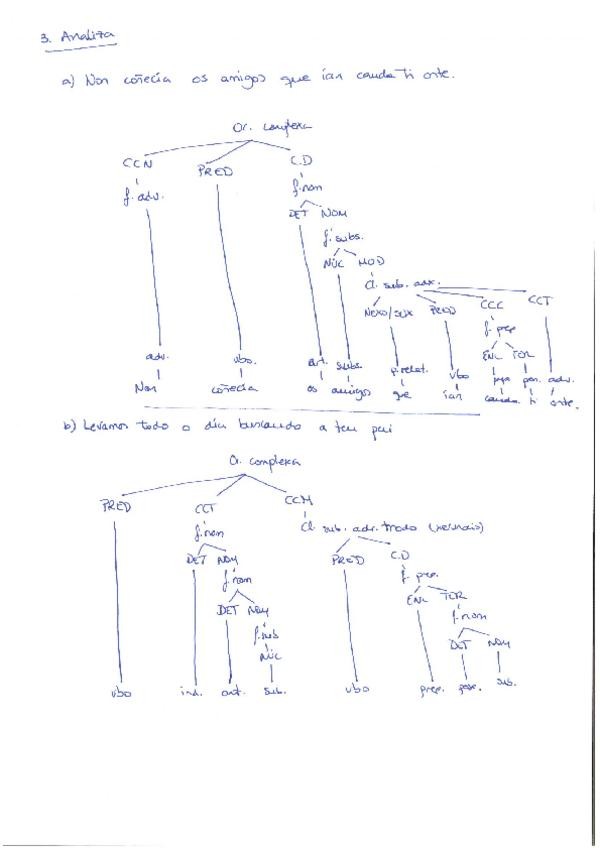 3. Analiza
a) Non coñecía os amigos que ían canda ti onte.
Or. complexa
CCN PRED C.D
f. adv. f. nom
DET NOM
f. subs.
NÚC MOD
Cl. sub. adx.
Nexo/SUX PRED CCC CCT
f. prep
ENL TER
adv. vbo. art. subs. p. relat. vbo prep pron. adv.
Non coñecía os amigos que ían canda ti onte.
b) Levamos todo o día buscando a teu pai
O. complexa
PRED CCT CCM
f. nom Cl. sub. adv. modo
DET NOM PRED C.D
f. nom f. prep.
DET NOM ENL TER
f. sub f. nom
NÚC DET NOM
vbo ind. art. sub. vbo prep. pose. sub.